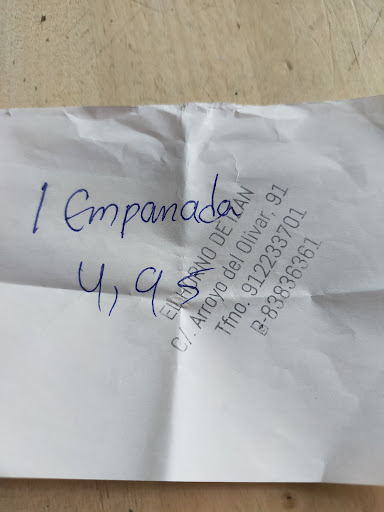 1 Empanada
4,95
EL HORNO DE
C/. Arroyo del Olivar, 91
Tfno. 912233701
B-83836361